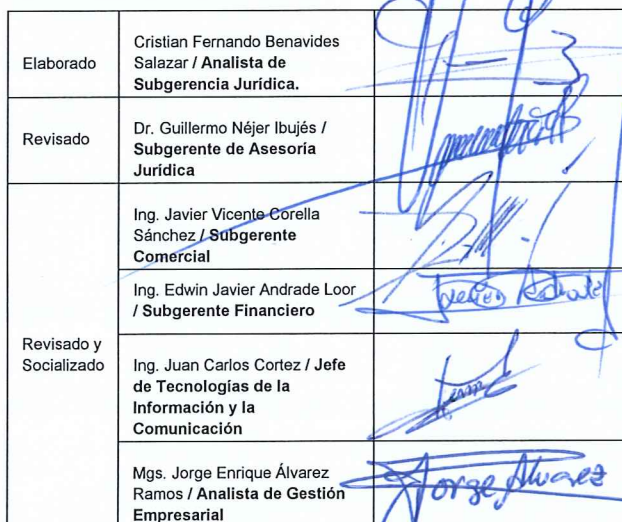 Elaborado
Cristian Fernando Benavides
Salazar / Analista de
Subgerencia Jurídica.
Revisado
Dr. Guillermo Néjer Ibujés /
Subgerente de Asesoría
Jurídica
Revisado y
Socializado
Ing. Javier Vicente Corella
Sánchez / Subgerente
Comercial
Ing. Edwin Javier Andrade Loor
/ Subgerente Financiero
Ing. Juan Carlos Cortez / Jefe
de Tecnologías de la
Información y la
Comunicación
Mgs. Jorge Enrique Álvarez
Ramos / Analista de Gestión
Empresarial
Jorge Alvarez